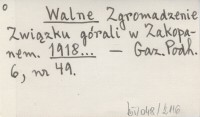 Walne Zgromadzenie
Związku górali w Zakopa-
nem. 1918... – Gaz. Podh.
6, nr 49.